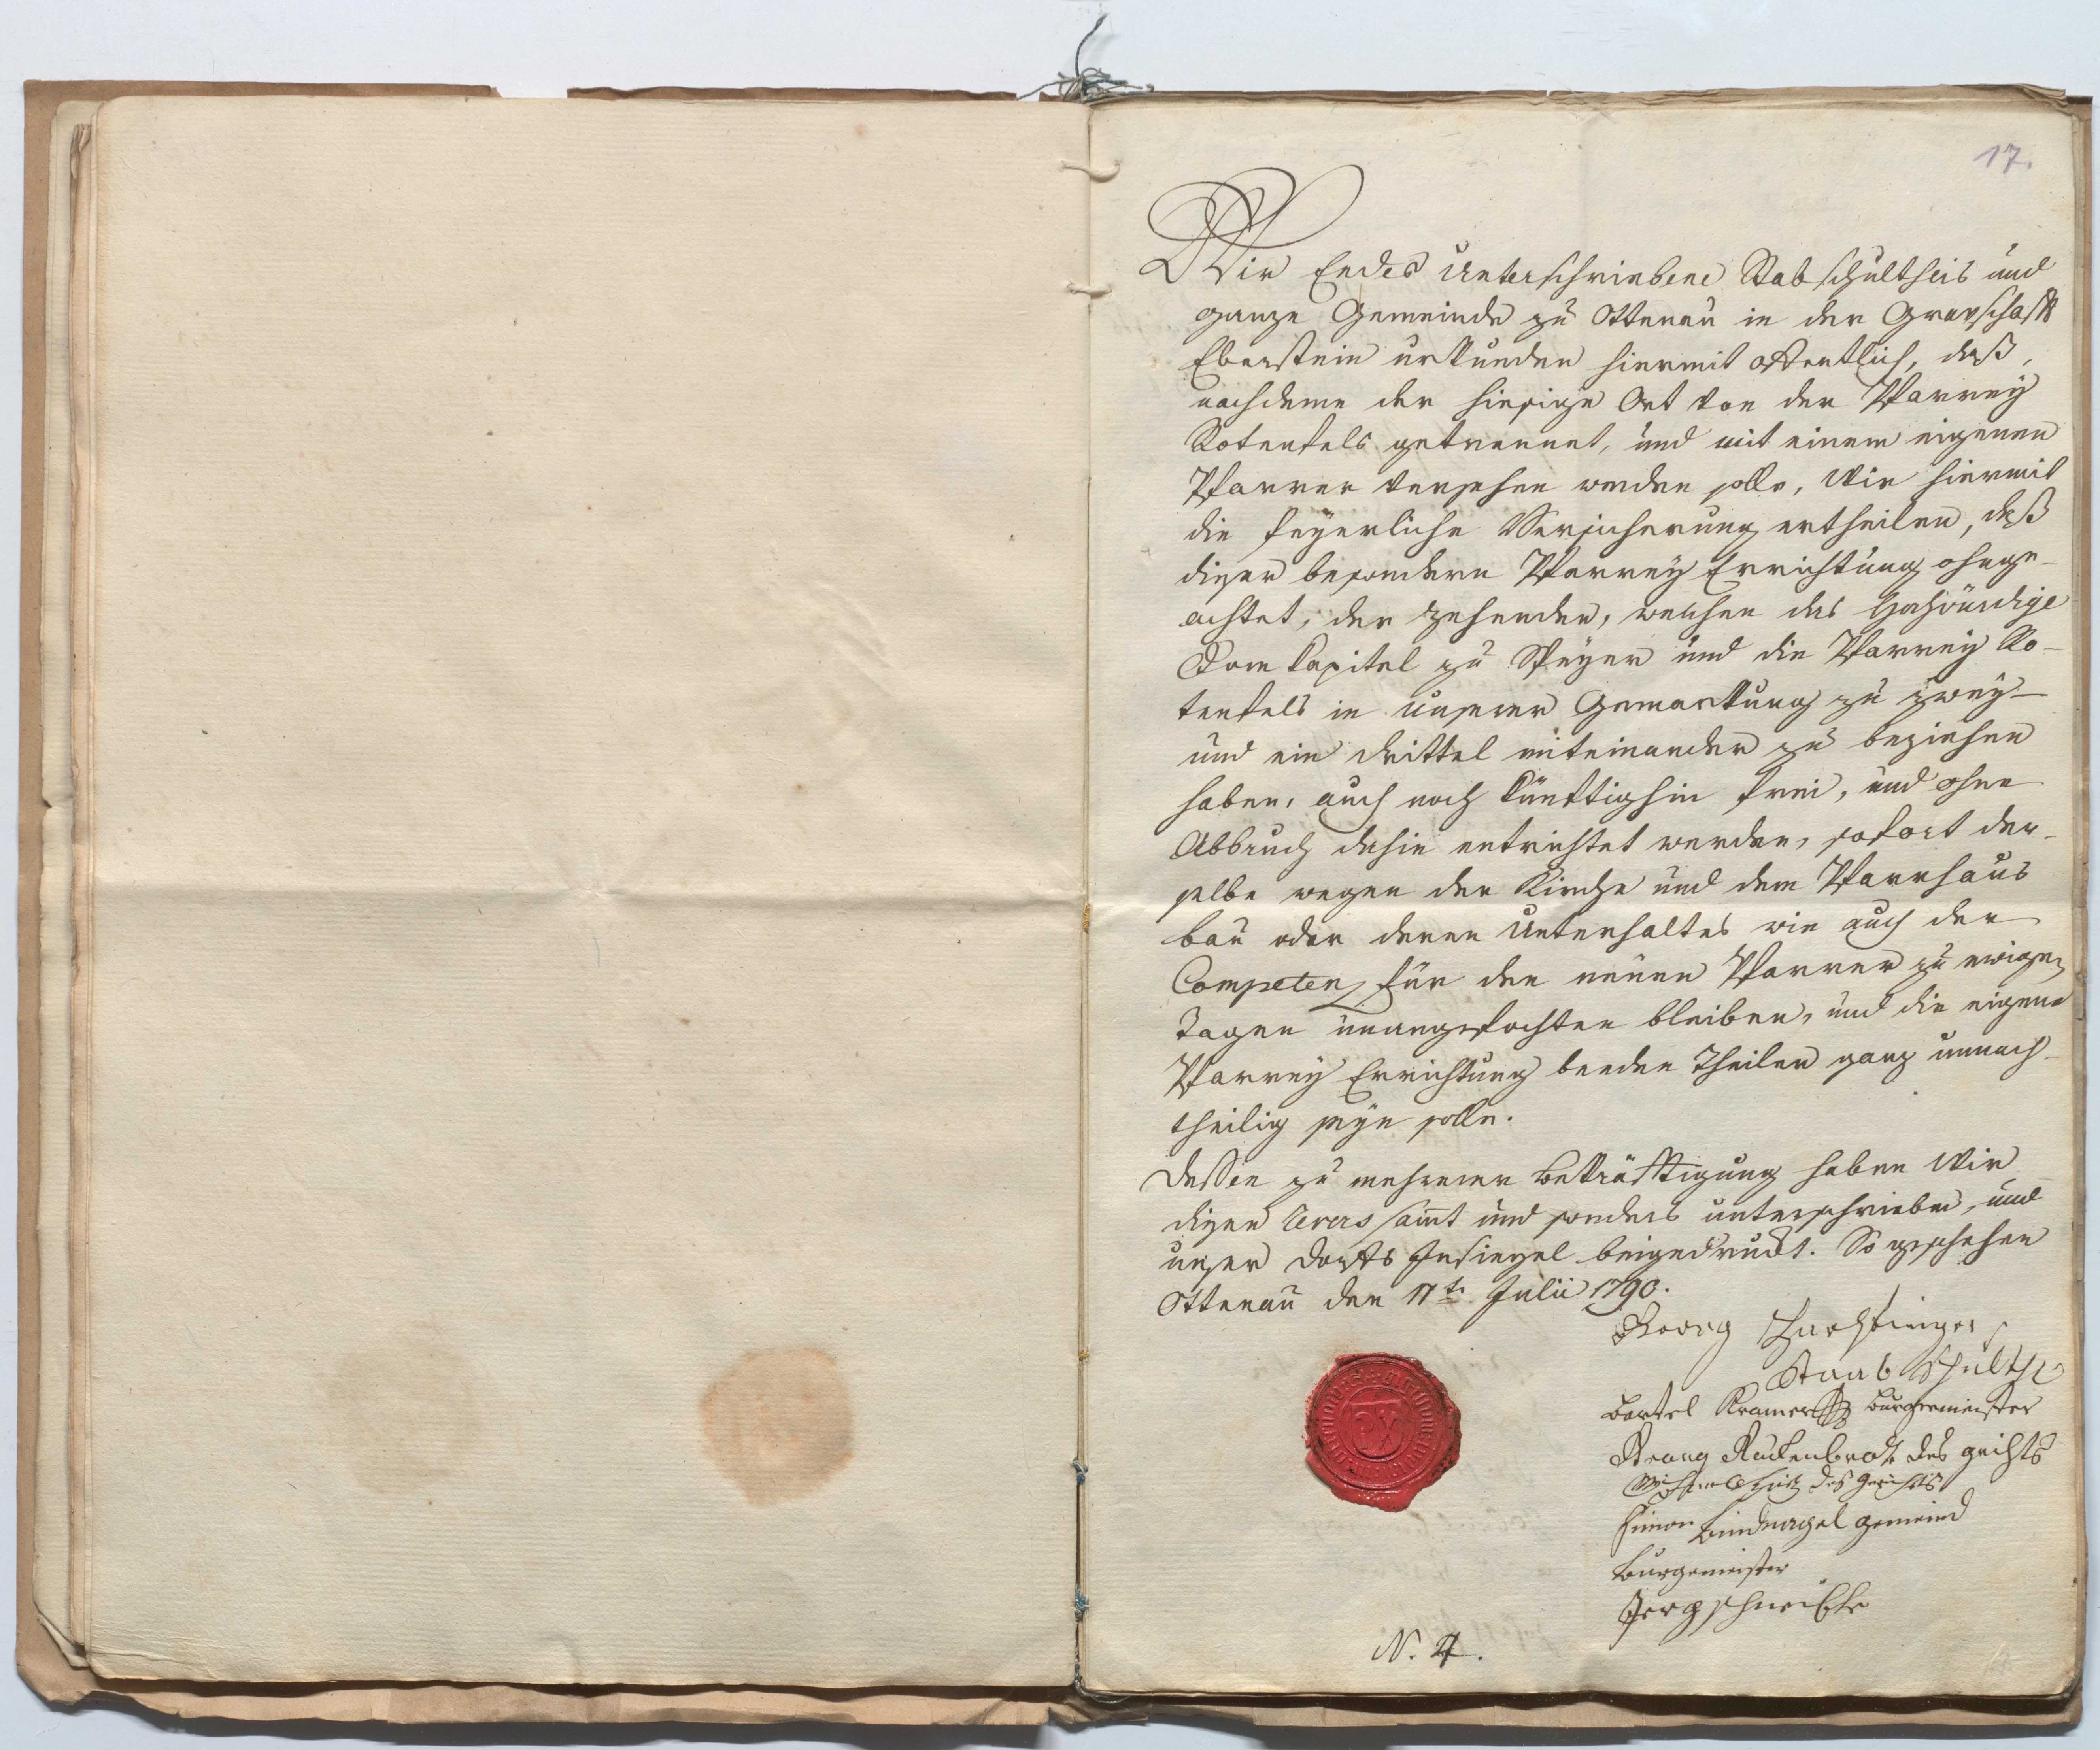 17.
Wir Endes Unterschriebene Stabschultheis und
ganze Gemeinde zu Ottenau in der Gravschaft
Eberstein urkunden hiermit offentlich, daß,
nachdeme der hiesige Ort von der Pfarrey
Rotenfels getrennet, und mit einem eigenen
Pfarrer versehen werden solle, Wir hiermit
die feyerliche Versicherung ertheilen, daß
dieser besondern Pfarrey Errichtung ohnge-
achtet, der Zehenden, welchen das Hochwürdige
Dom Kapitel zu Speyer und die Pfarrey Ro-
tenfels in unserer Gemarkung zu zwey-
und ein drittel miteinander zu beziehen
haben, auch noch künftighin frei, und ohne
Abbruch dahin entrichtet werden, sofort der-
selbe wegen der Kirche und dem Pfarrhaus
bau oder deren Unterhaltes wie auch der
Competenz für den neuen Pfarrer zu ewigen
Tagen unangefochten bleiben, und die eigene
Pfarrey Errichtung beeden Theilen ganz unnach-
theilig seyn solle.
Dessen zu mehrerer Bekräftigung haben Wir
diesen Revers samt und sonders unterschrieben, und
unser Dorfs Insiegel beigedruckt. So geschehen
Ottenau den 17t. Julii 1790.
Georg
Staab Schulths
Bartel Kramer Burgermeister
Georg Rautenbrodt des grichts
des Gerichts
Simon Bindnagel gemeind
Burgemeister
Jerg
N. 4.